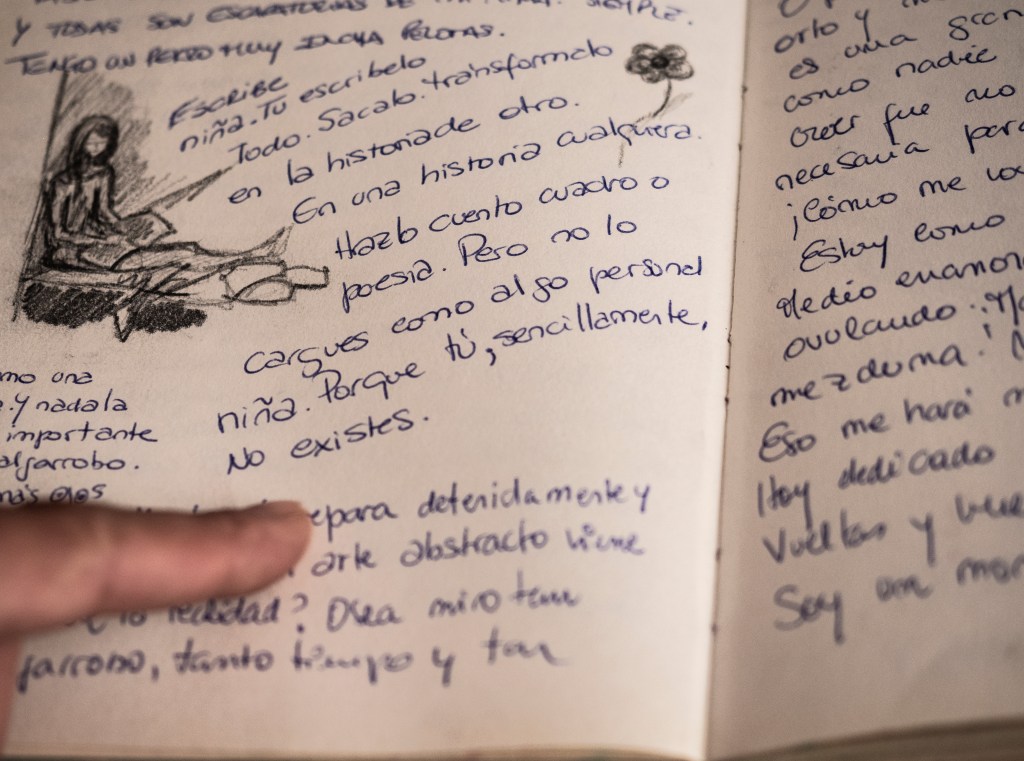 Y TODAS SON
SIEMPLE.
TENGO UN PERRO MUY
Escribe
niña. Tú escribelo
Todo. Sacalo. transformalo
en la historia de otro.
En una historia cualquiera.
Hazlo cuento cuadro o
poesia. Pero no lo
cargues como algo personal
niña. Porque tú, sencillamente,
No existes.
mo una
. Y nada la
importante
algarrobo.
más
epara detenidamente y
arte abstracto viene
realidad?
garrobo, tanto tiempo y tan
orto y
es una gran
como nadie
creer que no
necesaria para
¡Cómo me
Estoy como
medio enamor
ovulando.
mezduma!
Eso me hará
Hoy dedicado
Vueltas y
Soy un